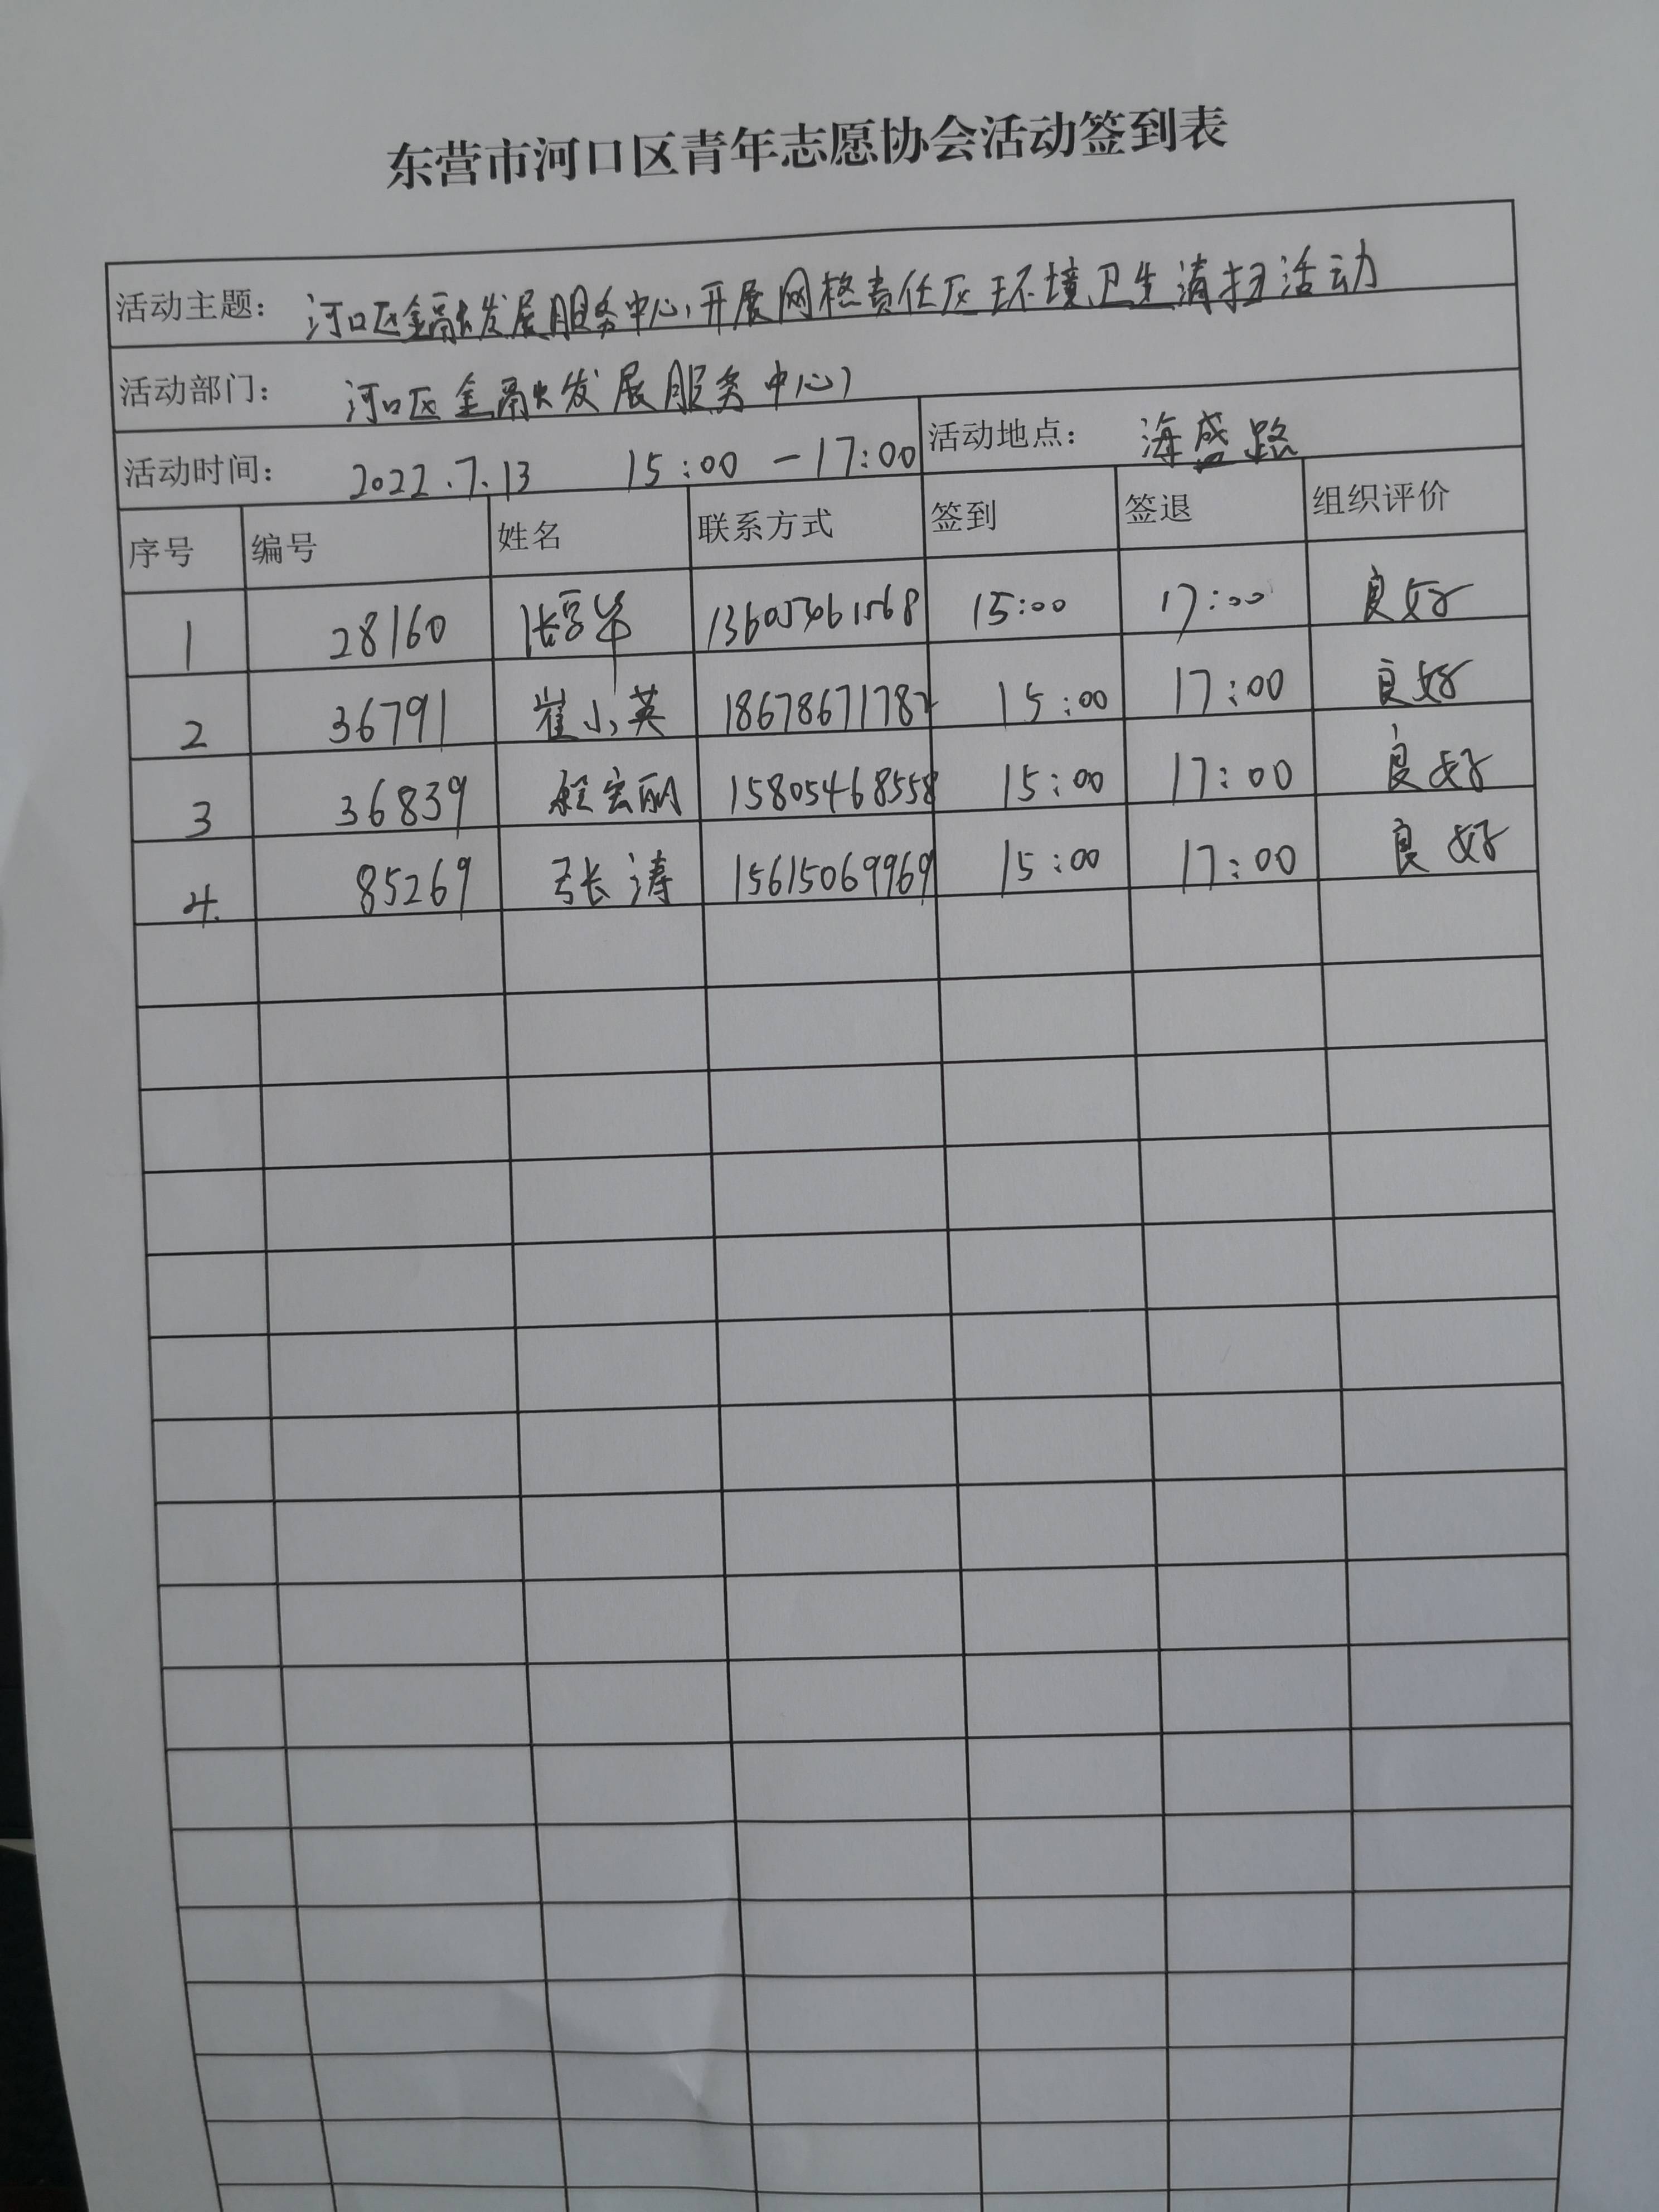 东营市河口区青年志愿协会活动签到表
活动主题： 河口区金融发展服务中心，开展网格责任区环境卫生清扫活动
活动部门： 河口区金融发展服务中心
活动时间： 2022.7.13 15:00 — 17:00 活动地点： 海盛路
序号 编号 姓名 联系方式 签到 签退 组织评价
1 28160 15:00 17:00 良好
2 36791 崔小英 18678671782 15:00 17:00 良好
3 36839 宏丽 15805468558 15:00 17:00 良好
4. 85269 张涛 15615069969 15:00 17:00 良好